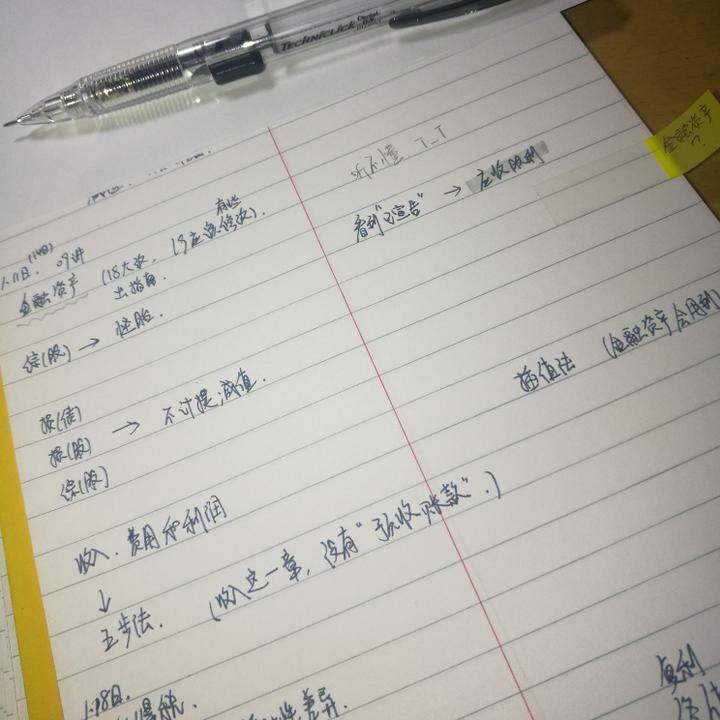 TECHNICLICK Pentel
金融资产
?
听不懂. T_T
看到"已宣告" → 应收股利
(14日)
1.11日. 09讲
有些
金融资产 (18大改, 19应该修改).
出指南
综(股) → 性股.
摊(债)
损(股) → 不计提减值.
综(股)
插值法 (金融资产会用到)
收入. 费用和利润
↓
五步法. (收入这一章, 没有"预收账款".)
1.18日.
差异.
复利